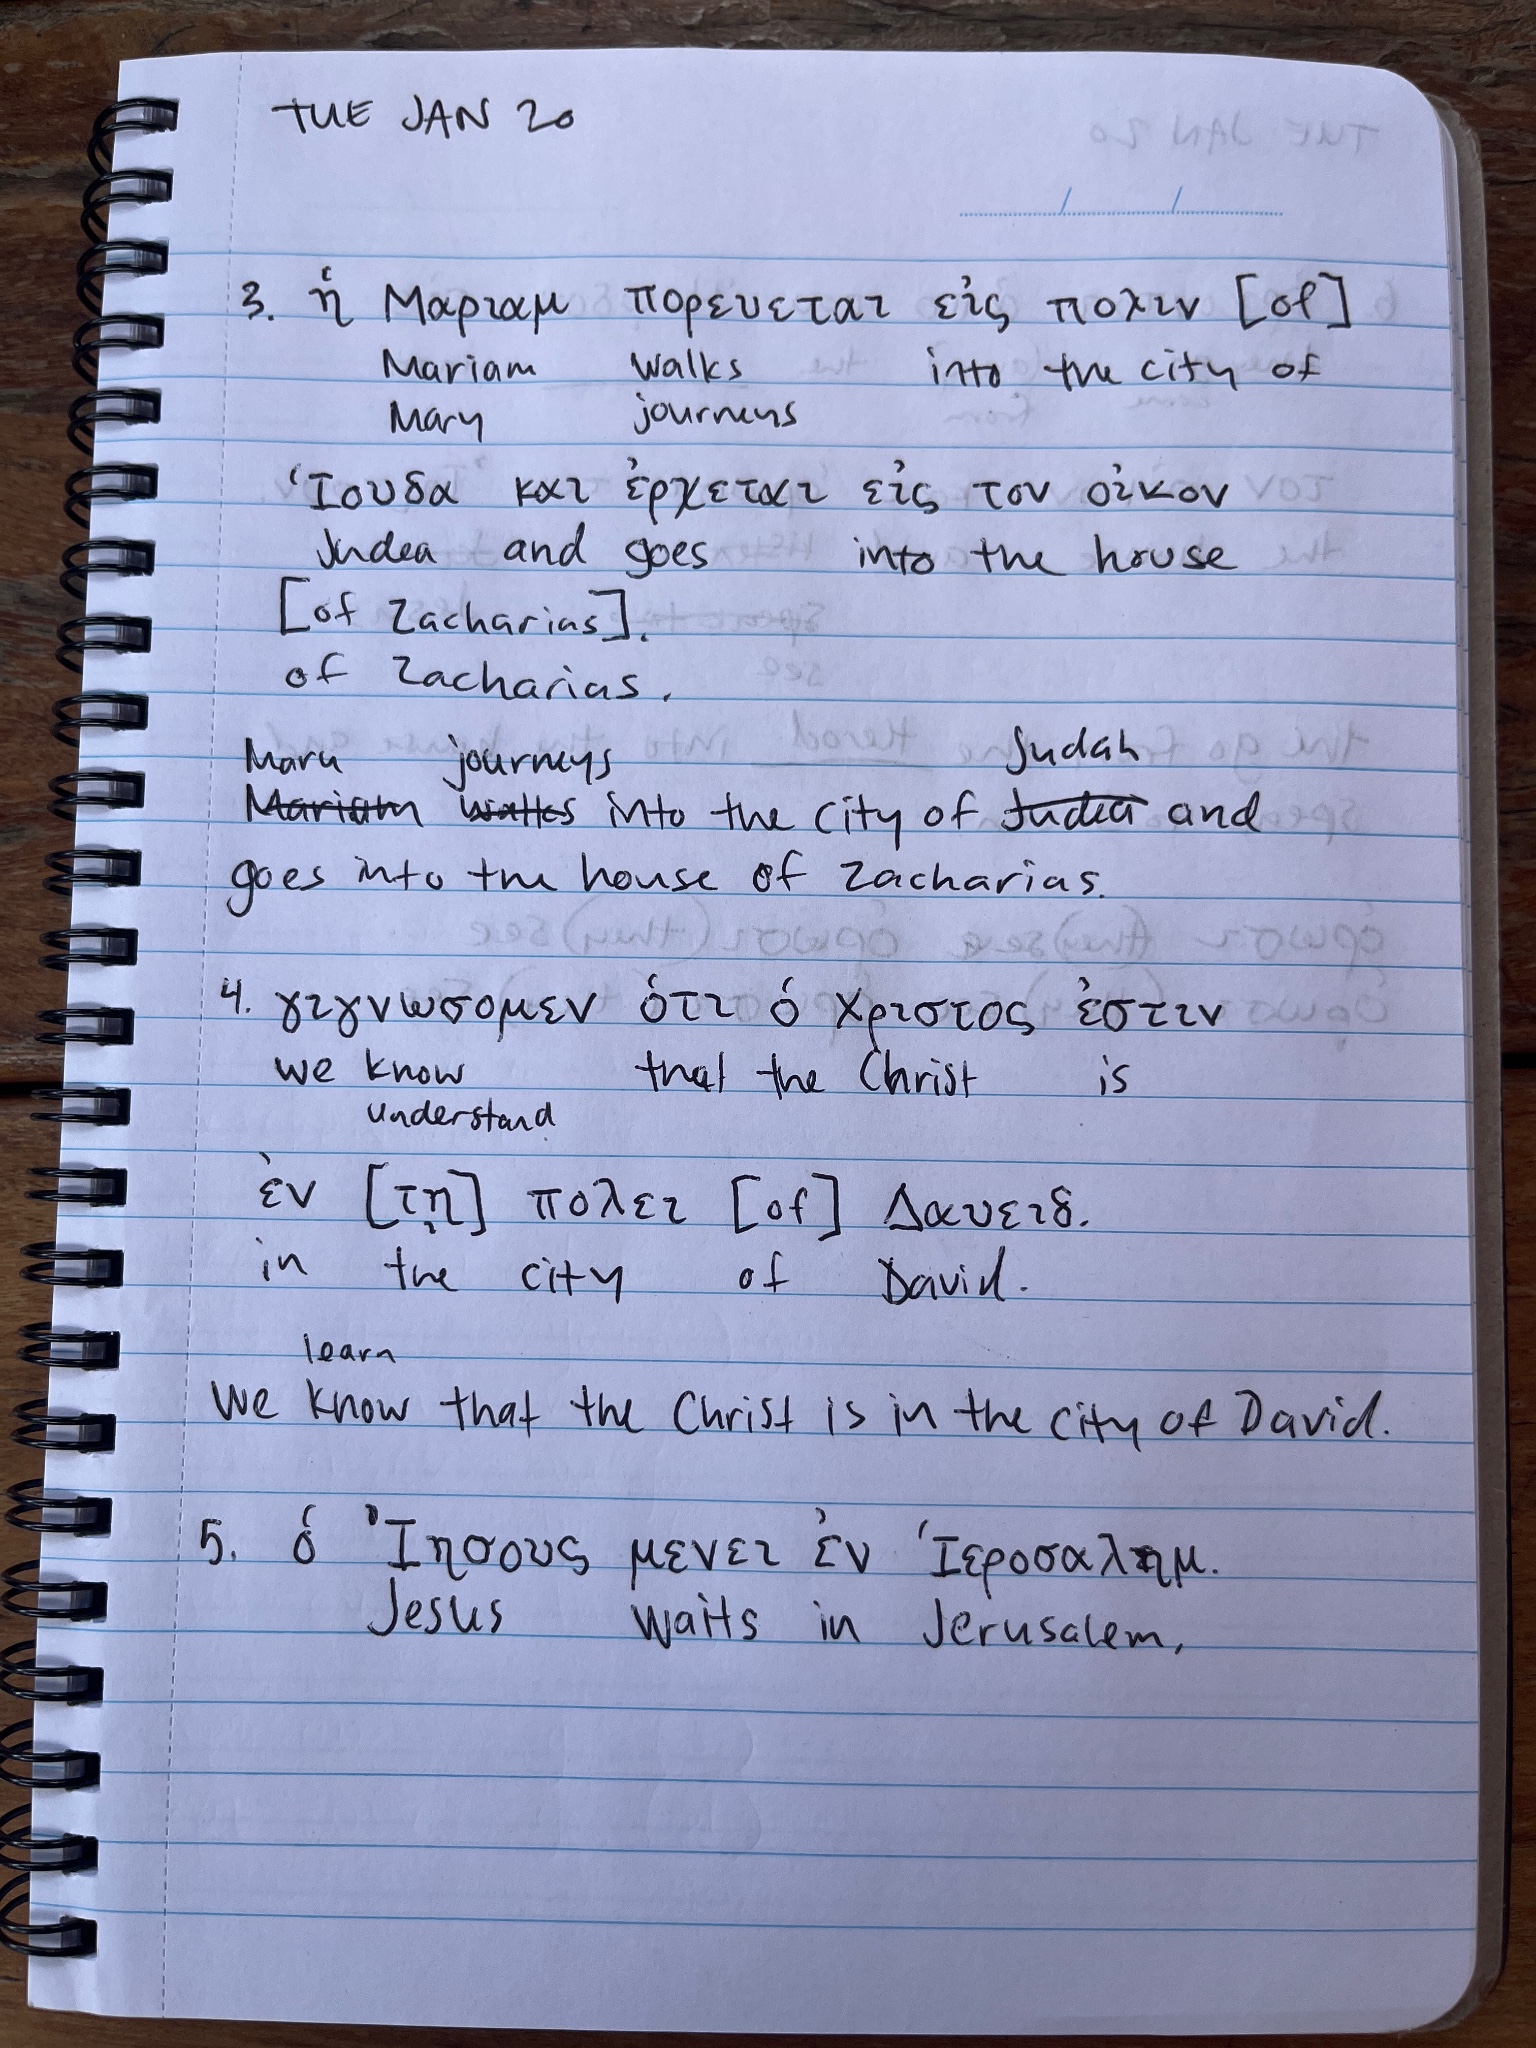 TUE JAN 20
3. ἡ Μαριαμ πορευεται εἰς πολιν [of]
Mariam walks into the city of
Mary journeys
Ἱουδα και ἐρχεται εἰς τον οἰκον
Judea and goes into the house
[of Zacharias].
of Zacharias.
Mary journeys Judah
Mariam walks into the city of Judea and
goes into the house of Zacharias.
4. γιγνωσομεν ὁτι ὁ Χριστος ἐστιν
we know that the Christ is
understand
ἐν [τῃ] πολει [of] Δαυειδ.
in the city of David.
learn
We know that the Christ is in the city of David.
5. ὁ Ἰησους μενει ἐν Ἱεροσαλημ.
Jesus waits in Jerusalem.